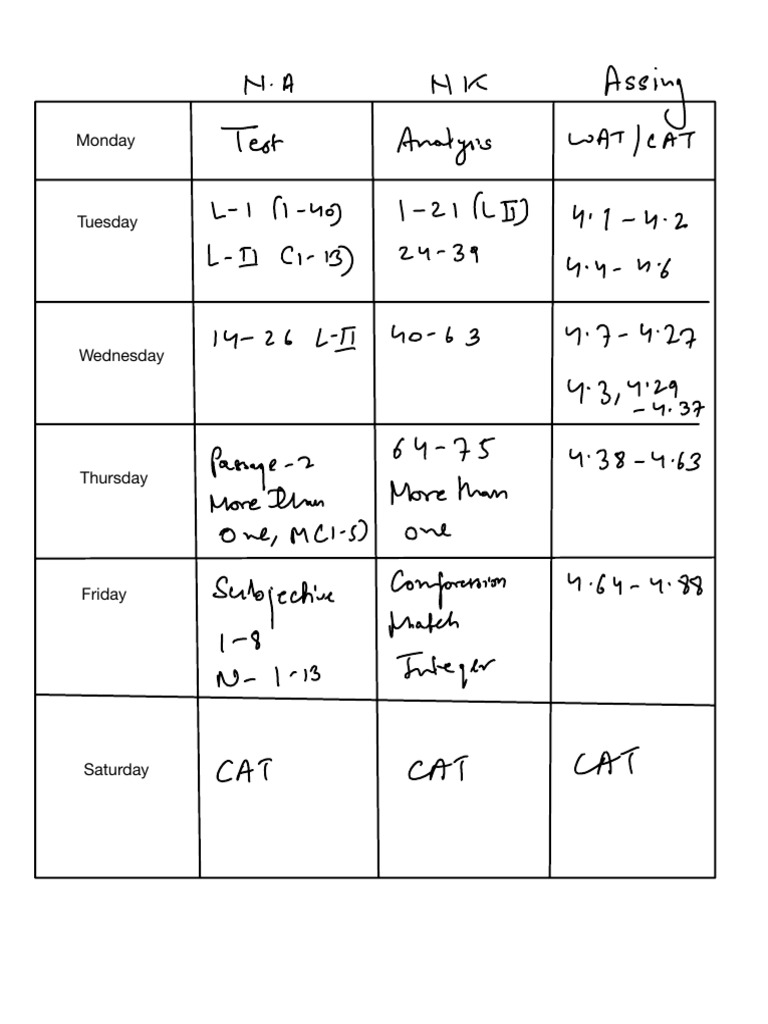 N.A NK Assing
Monday Test Analysis WAT/CAT
Tuesday L-1 (1-40) 1-21 (L II) 4.1-4.2
L-II (1-13) 24-39 4.4-4.6
Wednesday 14-26 L-II 40-63 4.7-4.27
4.3, 4.29
-4.37
Thursday Passage-2 64-75 4.38-4.63
More than More than
One, M(1-5) one
Friday Subjective Compression 4.64-4.88
1-8 Match
N- 1-13 Integer
Saturday CAT CAT CAT